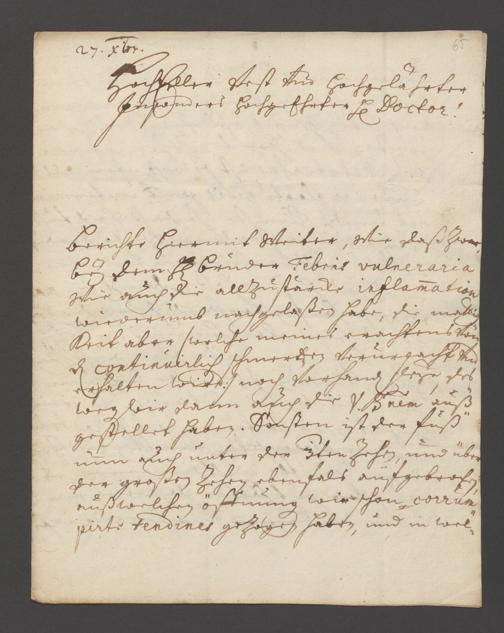 27. Xbr.
65
HochEdler Vest Und Hochgelährter
Jnsonders Hochgeehrter H Doctor!
berichte hiermit Weiter, wie daß zwar
beÿ dem H bruder Febris vulneraria
wie auch die allzustarke inflam̄ation
wiederumb nachgelaßen habe, die
Keit aber (welche meines erachtens von
d continuirlich schmertzen verursacht und
erhalten wird) noch vorhand seÿe, des
weg wir dann auch die auß
gestellet haben. Sonsten ist der fuß
nun auch unter der 3ten Zehen und über
der großen Zehen ebenfals aufgebroch
außwelchen öffnung wir schon corrum
pirte Tendines gezogen haben, und in wel-